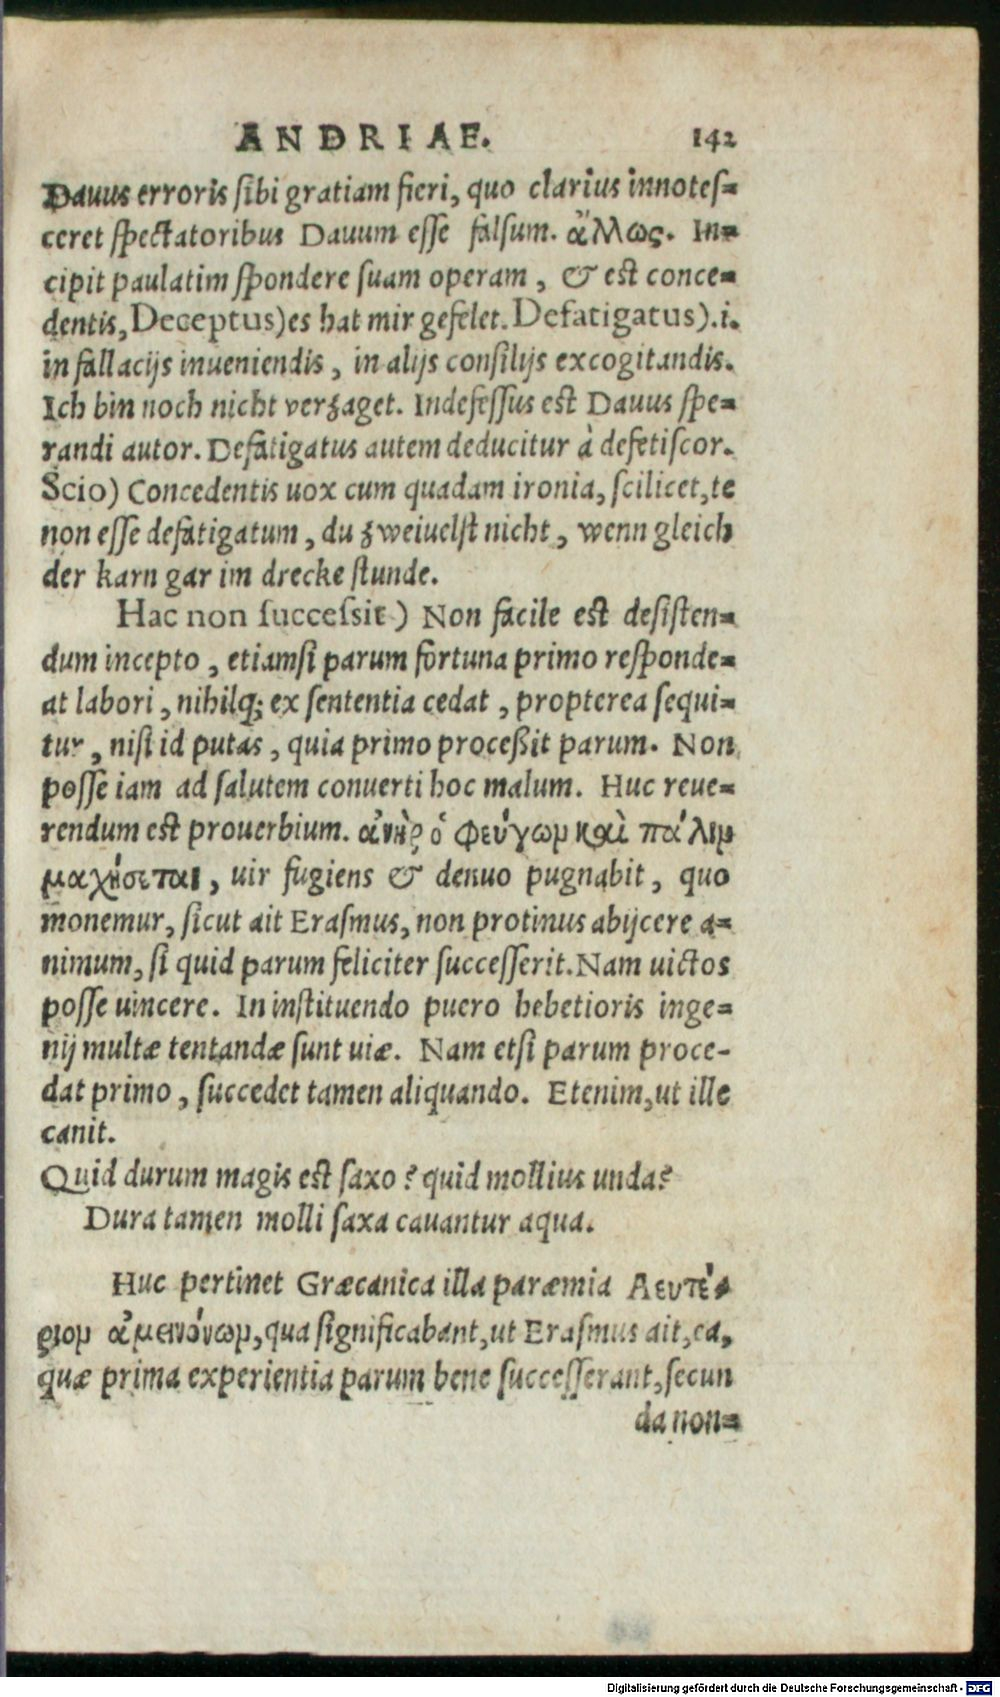 ANDRIAE. 142
Dauus erroris sibi gratiam fieri, quo clarius innotes=
ceret spectatoribus Dauum esse falsum. ἄλλως. In=
cipit paulatim spondere suam operam, & est conce=
dentis, Deceptus) es hat mir gefelet. Defatigatus).i.
in fallacijs inueniendis, in alijs consilijs excogitandis.
Ich bin noch nicht verzaget. Indefessus est Dauus spe=
randi autor. Defatigatus autem deducitur à defetiscor.
Scio) Concedentis uox cum quadam ironia, scilicet, te
non esse defatigatum, du zweiuelst nicht, wenn gleich
der karn gar im drecke stunde.
Hac non successit) Non facile est desisten=
dum incepto, etiamsi parum fortuna primo responde=
at labori, nihilq; ex sententia cedat, propterea sequi=
tur, nisi id putas, quia primo proceßit parum. Non
posse iam ad salutem conuerti hoc malum. Huc reue=
rendum est prouerbium. ἀνὴρ ὁ φεύγων καὶ πάλιν
μαχήσεται, uir fugiens & denuo pugnabit, quo
monemur, sicut ait Erasmus, non protinus abijcere a=
nimum, si quid parum feliciter successerit. Nam uictos
posse uincere. In instituendo puero hebetioris inge=
nij multæ tentandæ sunt uiæ. Nam etsi parum proce-
dat primo, succedet tamen aliquando. Etenim, ut ille
canit.
Quid durum magis est saxo? quid mollius unda?
Dura tamen molli saxa cauantur aqua.
Huc pertinet Græcanica illa paræmia Δευτέ=
ριον ἀμεινόνων, qua significabant, ut Erasmus ait, ea,
quæ prima experientia parum bene successerant, secun
da non=
Digitalisierung gefördert durch die Deutsche Forschungsgemeinschaft - DFG